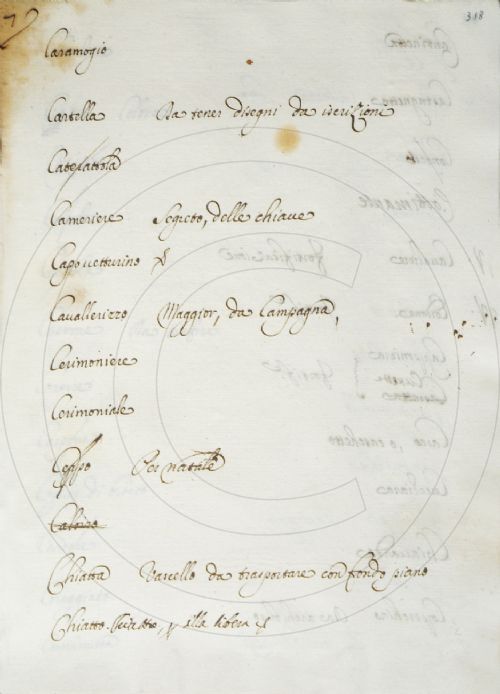 318
Caramogio
Cartella Da tener disegni da iscrizioni
Catapattola
Cameriere Segreto, delle chiave
Capo vetturino
Cavallerizzo Maggior, da Campagna,
Cerimoniere
Cerimoniale
Ceppo Per natale
Chiatta Vascello da trasportare con fondo piano
Chiatto alla libera